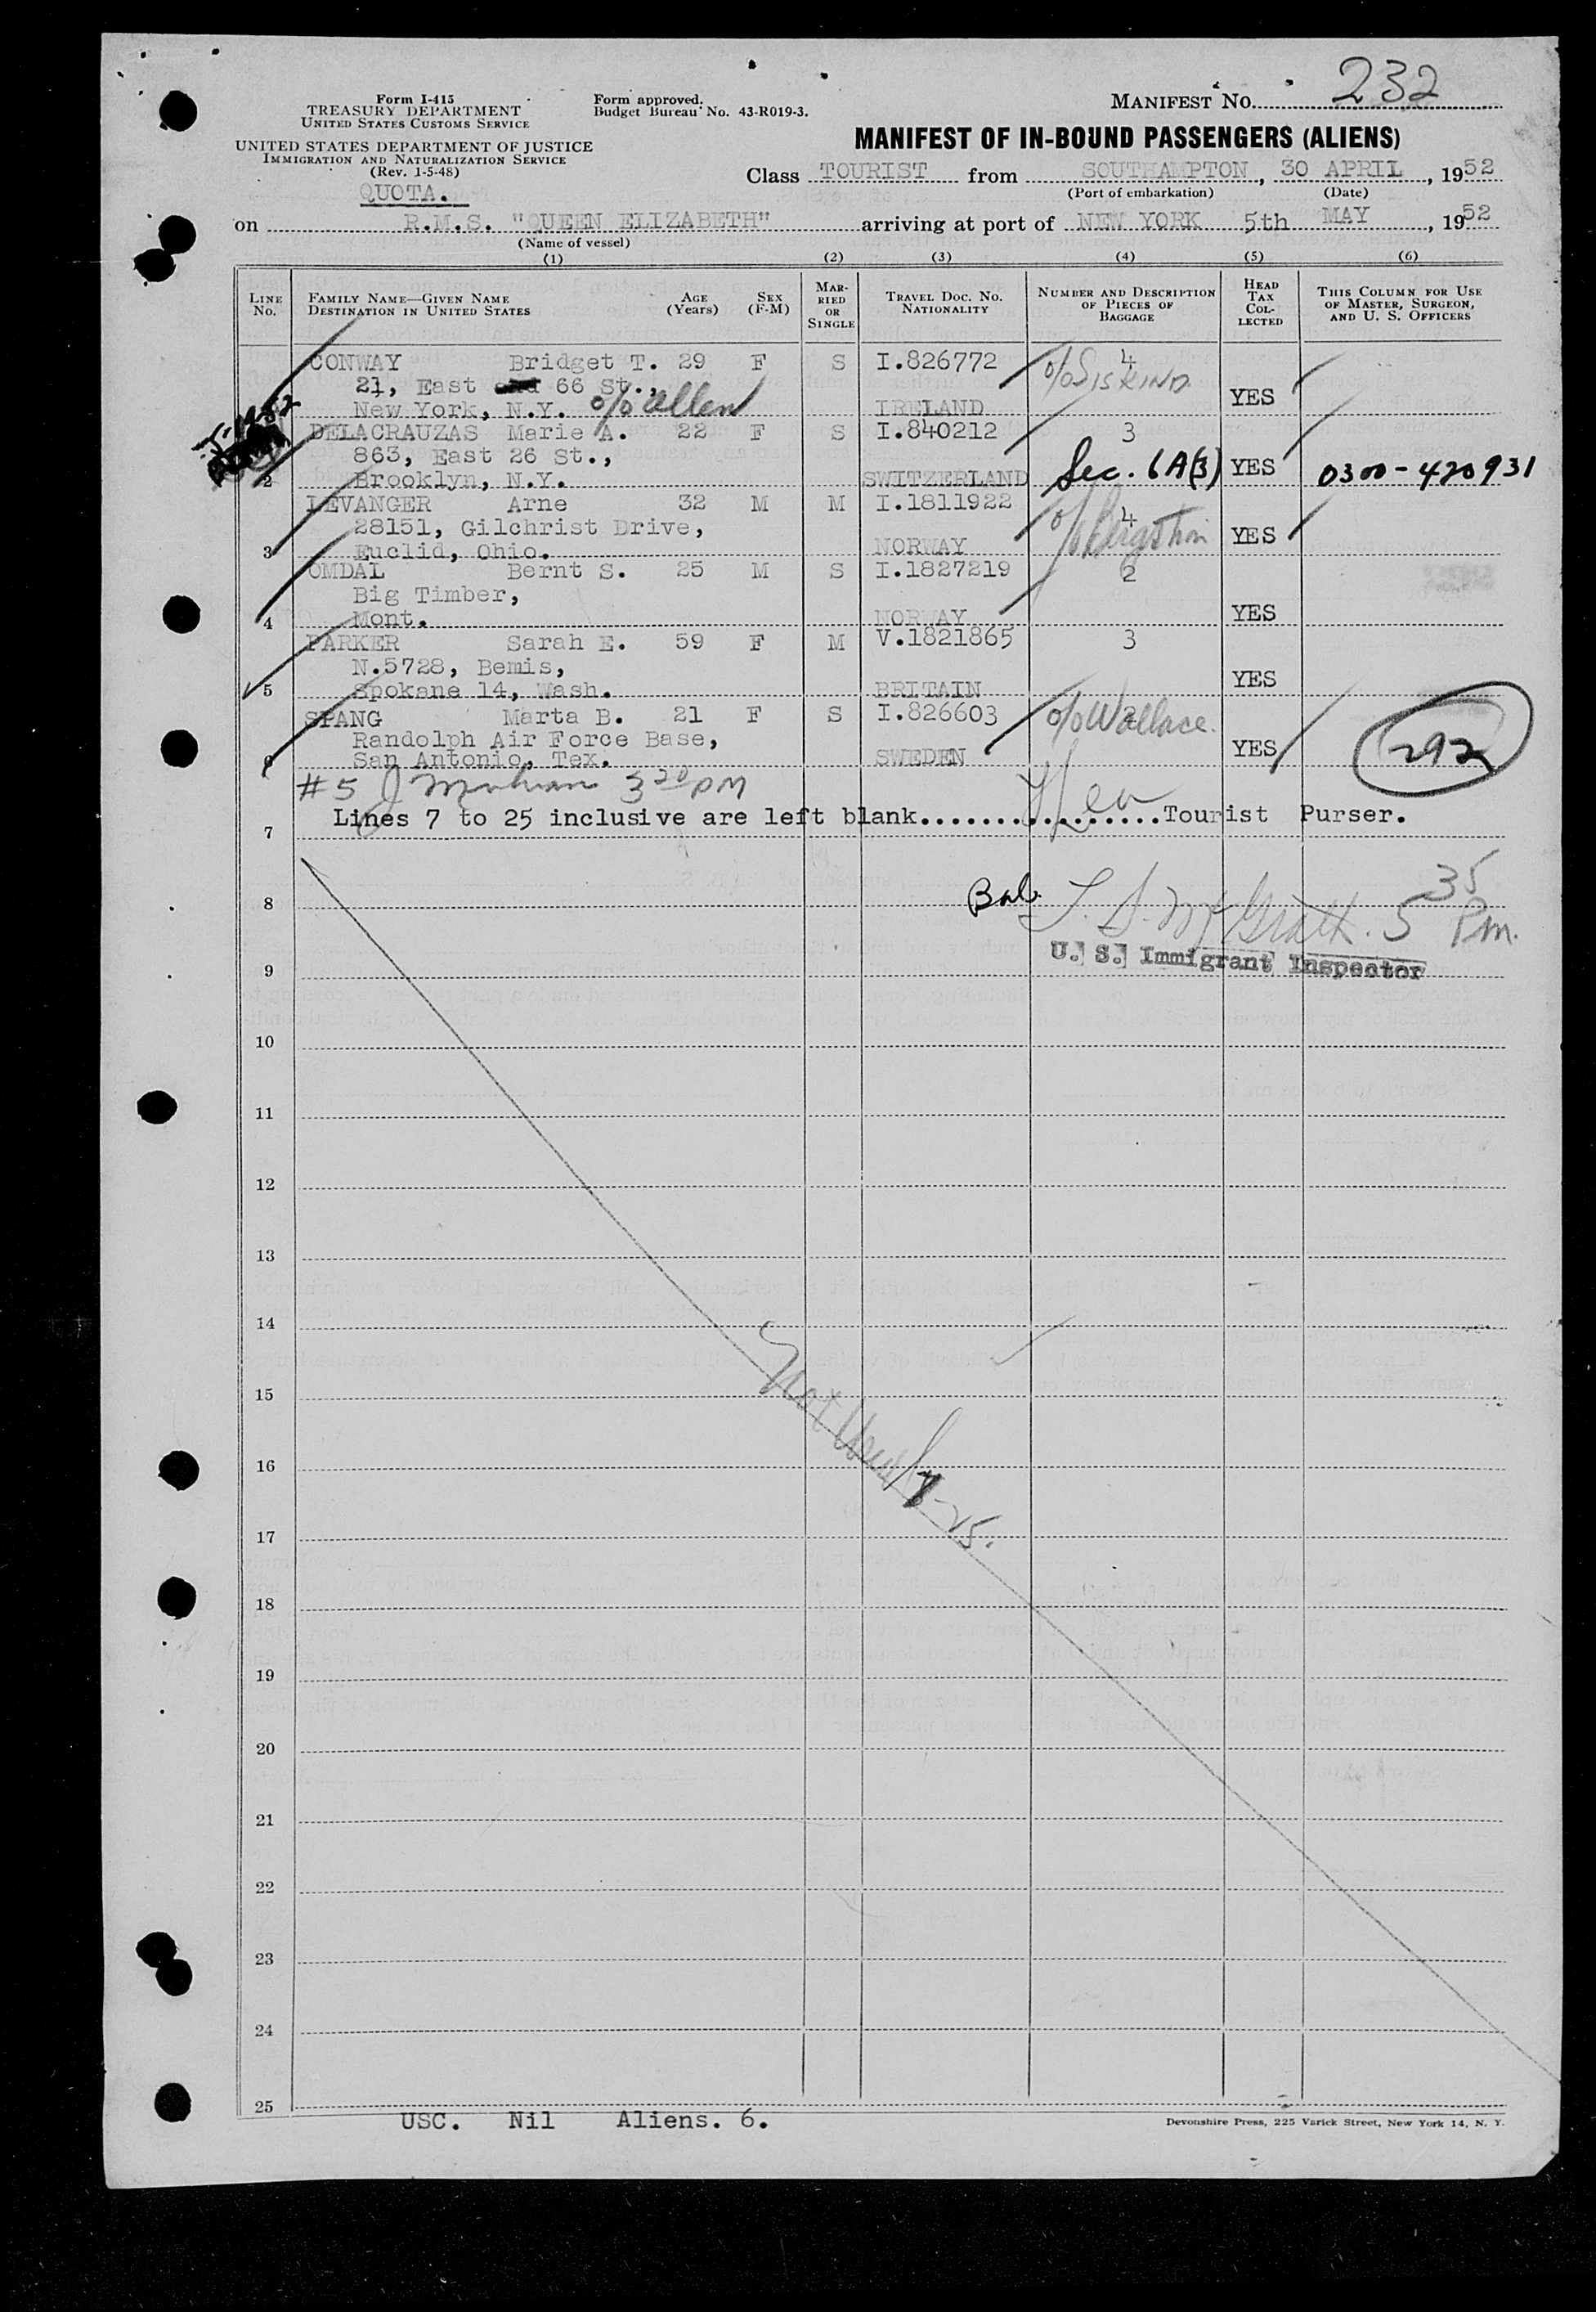 Form I-415
TREASURY DEPARTMENT
UNITED STATES CUSTOMS SERVICE
UNITED STATES DEPARTMENT OF JUSTICE
IMMIGRATION AND NATURALIZATION SERVICE
(Rev. 1-5-48)
QUOTA.
Form approved.
Budget Bureau No. 43-R019-3.
MANIFEST NO. 232
MANIFEST OF IN-BOUND PASSENGERS (ALIENS)
Class TOURIST from SOUTHAMPTON, 30 APRIL, 1952
(Port of embarkation) (Date)
on R.M.S. "QUEEN ELIZABETH" arriving at port of NEW YORK 5th MAY, 1952
(Name of vessel)
(1) (2) (3) (4) (5) (6)
LINE NO. FAMILY NAME—GIVEN NAME DESTINATION IN UNITED STATES AGE (Years) SEX (F-M) MARRIED OR SINGLE TRAVEL DOC. NO. NATIONALITY NUMBER AND DESCRIPTION OF PIECES OF BAGGAGE HEAD TAX COLLECTED THIS COLUMN FOR USE OF MASTER, SURGEON, AND U. S. OFFICERS
CONWAY Bridget T. 29 F S I.826772 4
21, East 66 St., c/o Siskind
New York, N.Y. c/o Allen IRELAND YES
DELACRAUZAS Marie A. 22 F S I.840212 3
863, East 26 St.,
2 Brooklyn, N.Y. SWITZERLAND Sec. 6A(3) YES 0300-420931
LEVANGER Arne 32 M M I.1811922 4
28151, Gilchrist Drive,
3 Euclid, Ohio. NORWAY YES
OMDAL Bernt S. 25 M S I.1827219 2
Big Timber,
4 Mont. NORWAY YES
PARKER Sarah E. 59 F M V.1821865 3
N.5728, Bemis,
5 Spokane 14, Wash. BRITAIN YES
SPANG Marta B. 21 F S I.826603 2 c/o Wallace.
Randolph Air Force Base,
6 San Antonio, Tex. SWEDEN YES 292
#5 3 20 PM
7 Lines 7 to 25 inclusive are left blank.................Tourist Purser.
8 Bal. McGrath. 5 35 Pm.
U. S. Immigrant Inspector
9
10
11
12
13
14
15
Not Used 7-25.
16
17
18
19
20
21
22
23
24
25
USC. Nil Aliens. 6.
Devonshire Press, 225 Varick Street, New York 14, N. Y.